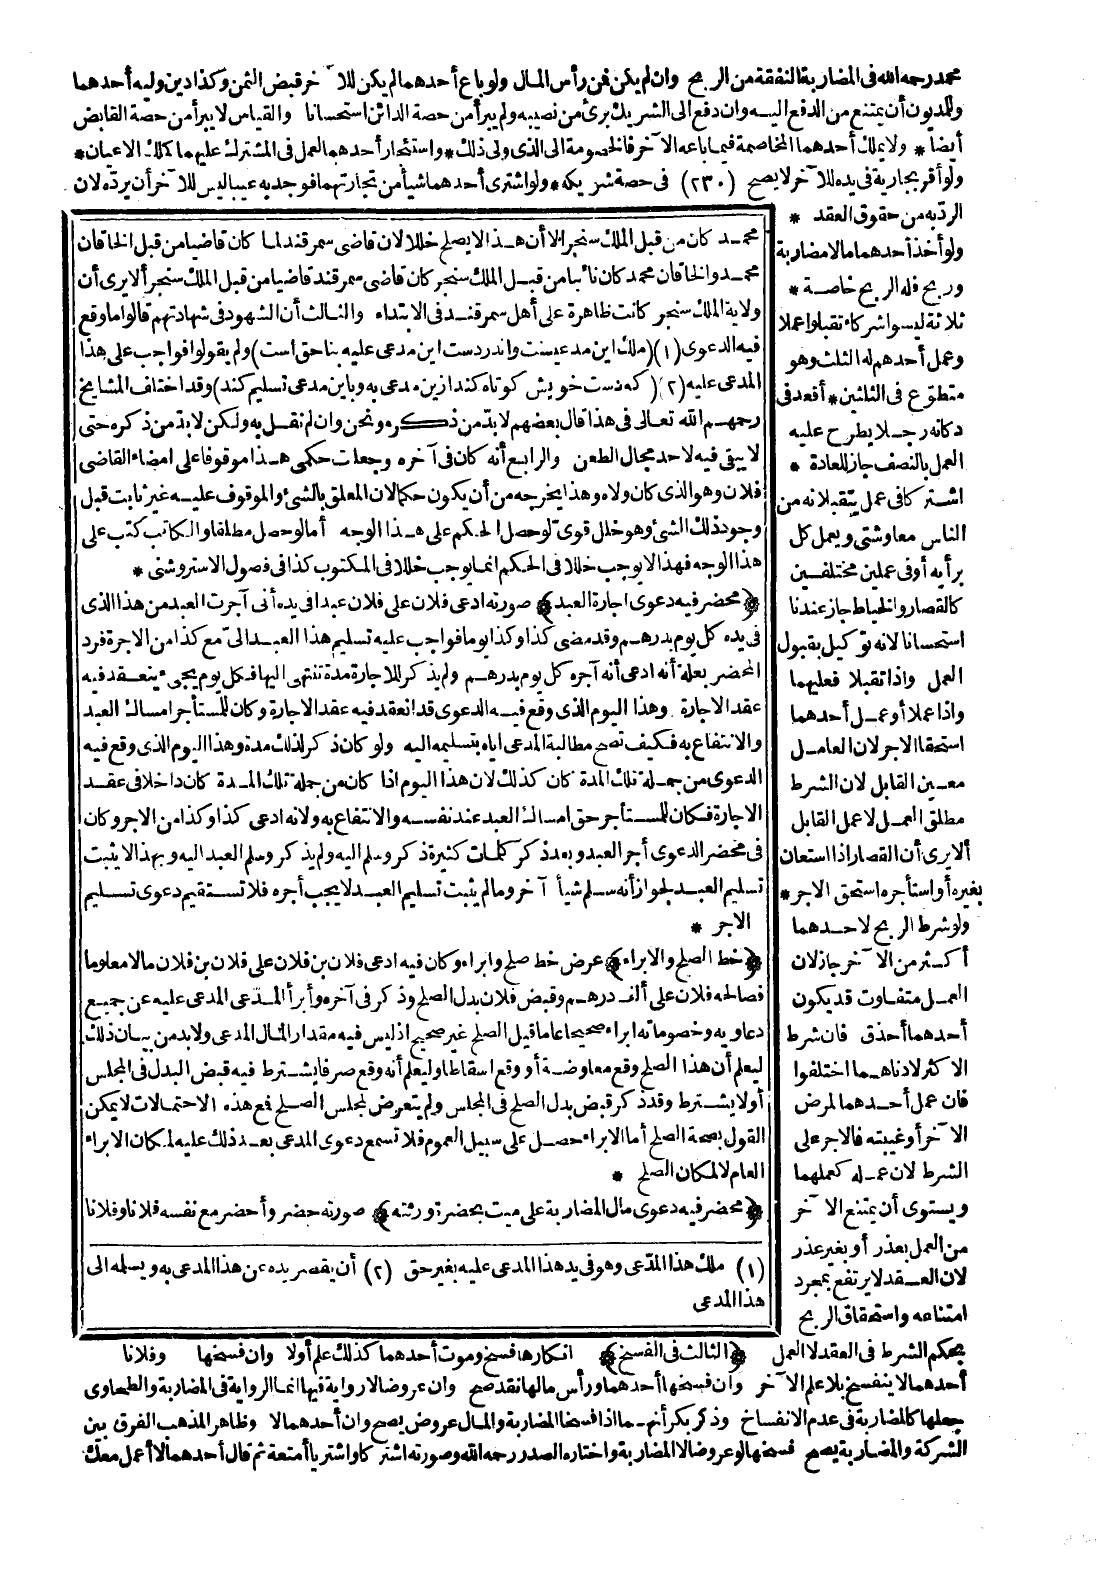 محمد رحمه الله فى المضاربة النفقة من الربح وان لم يكن فمن رأس المال ولو باع أحدهما لم يكن للآخر قبض الثمن وكذا دين وليه أحدهما
وللمديون أن يمتنع من الدفع اليه وان دفع الى الشريك برئ من نصيبه ولم يبرأ من حصة الدائن استحسانا والقياس لا يبرأ من حصة القابض
أيضا * ولا يملك أحدهما المخاصمة فيما باعه الآخر فالخصومة الى الذى ولى ذلك * واستئجار أحدهما العمل فى المشترك عليهما كذلك الاعيان *
ولو أقر بجارية فى يده للآخر لا يصح (٢٣٠) فى حصة شريكه * ولو اشترى أحدهما شيأ من تجارتهما فوجد به عيبا ليس للآخر أن يردّه لان
الردّ به من حقوق العقد *
ولو أخذ أحدهما مالا مضاربة
وربح فله الربح خاصة *
ثلاثة ليسوا شركاء تقبلوا عملا
وعمل أحدهم له الثلث وهو
متطوّع فى الثلثين * أقعد فى
دكانه رجلا يطرح عليه
العمل بالنصف جاز للعادة *
اشتركا فى عمل يتقبلانه من
الناس معاوشتى ويعمل كل
برأيه أو فى عملين مختلفين
كالقصار والخياط جاز عندنا
استحسانا لانه توكيل بقبول
العمل واذا تقبلا فعليهما
واذا عملا أو عمل أحدهما
استحقا الاجر لان العامل
معين القابل لان الشرط
مطلق العمل لا عمل القابل
ألا يرى أن القصار اذا استعان
بغيره أو استأجره استحق الاجر *
ولو شرط الربح لاحدهما
أكثر من الآخر جاز لان
العمل متفاوت قد يكون
أحدهما أحذق فان شرط
الاكثر لادناهما اختلفوا
فان عمل أحدهما لمرض
الآخر أو غيبته فالاجر على
الشرط لان عمله كعملهما
ويستوى أن يمتنع الآخر
من العمل بعذر أو بغير عذر
لان العقد لا يرتفع بمجرد
امتناعه واستحقاق الربح
محمد كان من قبل الملك سنجر الا أن هذا لا يصلح خللا لان قاضى سمرقند لما كان قاضيا من قبل الخاقان
محمد والخاقان محمد كان نائبا من قبل الملك سنجر كان قاضى سمرقند قاضيا من قبل الملك سنجر ألا يرى أن
ولاية الملك سنجر كانت ظاهرة على أهل سمرقند فى الابتداء والثالث أن الشهود فى شهادتهم قالوا ما وقع
فيه الدعوى (١) (ملك اين مدعيست واندر دست اين مدعى عليه بناحق است) ولم يقولوا فواجب على هذا
المدعى عليه (٢) (كه دست خويش كوتاه كند ازين مدعى به وباين مدعى تسليم كند) وقد اختلف المشايخ
رحمهم الله تعالى فى هذا قال بعضهم لا بدّ من ذكره ونحن وان لم نقل به ولكن لا بد من ذكره حتى
لا يبقى فيه لاحد مجال الطعن والرابع أنه كان فى آخره وجعلت حكمى هذا موقوفا على امضاء القاضى
فلان وهو الذى كان ولاه وهذا يخرجه من أن يكون حكما لان المعلق بالشئ والموقوف عليه غير ثابت قبل
وجود ذلك الشئ وهو خلل قوىّ لو حصل الحكم على هذا الوجه أما لو حصل مطلقا والكاتب كتب على
هذا الوجه فهذا لا يوجب خللا فى الحكم انما يوجب خللا فى المكتوب كذا فى فصول الاستروشنى *
﴿محضر فيه دعوى اجارة العبد﴾ صورته ادعى فلان على فلان عبدا فى يده أنى آجرت العبد من هذا الذى
فى يده كل يوم بدرهم وقد مضى كذا وكذا يوما فواجب عليه تسليم هذا العبد الىّ مع كذا من الاجرة فرد
المحضر بعلة أنه ادعى أنه آجره كل يوم بدرهم ولم يذكر للاجارة مدة تنتهى اليها فكل يوم يجىء ينعقد فيه
عقد الاجارة وهذا اليوم الذى وقع فيه الدعوى قد انعقد فيه عقد الاجارة وكان للمستأجر امساك العبد
والانتفاع به فكيف تصح مطالبة المدعى اياه بتسليمه اليه ولو كان ذكر لذلك مدة وهذا اليوم الذى وقع فيه
الدعوى من جملة تلك المدة كان كذلك لان هذا اليوم اذا كان من جملة تلك المدة كان داخلا فى عقد
الاجارة فكان للمستأجر حق امساك العبد عند نفسه والانتفاع به ولانه ادعى كذا وكذا من الاجر وكان
فى محضر الدعوى أجر العبد وبعد ذكر كلمات كثيرة ذكر وسلم اليه ولم يذكر وسلم العبد اليه وبهذا لا يثبت
تسليم العبد لجواز أنه سلم شيأ آخر وما لم يثبت تسليم العبد لا يجب أجره فلا تستقيم دعوى تسليم
الاجر *
﴿خط الصلح والابراء﴾ عرض خط صلح وابراء وكان فيه ادعى فلان بن فلان على فلان بن فلان مالا معلوما
فصالحه فلان على ألف درهم وقبض فلان بدل الصلح وذكر فى آخره وأبرأ المدّعى المدعى عليه عن جميع
دعاويه وخصوماته ابراء صحيحا عاما قيل الصلح غير صحيح اذ ليس فيه مقدار المال المدعى ولا بد من بيان ذلك
ليعلم أن هذا الصلح وقع معاوضة أو وقع اسقاطا وليعلم أنه وقع صرفا يشترط فيه قبض البدل فى المجلس
أو لا يشترط وقد ذكر قبض بدل الصلح فى المجلس ولم يتعرض لمجلس الصلح فمع هذه الاحتمالات لا يمكن
القول بصحة الصلح أما الابراء حصل على سبيل العموم فلا تسمع دعوى المدعى بعد ذلك عليه لمكان الابراء
العام لا لمكان الصلح *
﴿محضر فيه دعوى مال المضاربة على ميت بحضرة ورثته﴾ صورته حضر وأحضر مع نفسه فلانا وفلانا
(١) ملك هذا المدّعى وهو فى يد هذا المدعى عليه بغير حق (٢) أن يقصر يده عن هذا المدعى به ويسلمه الى
هذا المدعى
بحكم الشرط فى العقد لا العمل ﴿الثالث فى الفسخ﴾ انكارها فسخ وموت أحدهما كذلك علم أولا وان فسخها وفلانا
أحدهما لا ينفسخ بلا علم الآخر وان فسخها أحدهما ورأس مالها نقد صح وان عروضا لا رواية فيها انما الرواية فى المضاربة والطحاوى
جعلها كالمضاربة فى عدم الانفساخ وذكر بكر أنهما اذا فسخا المضاربة والمال عروض يصح وان أحدهما لا وظاهر المذهب الفرق بين
الشركة والمضاربة يصح فسخها لو عروضا لا المضاربة واختاره الصدر رحمه الله وصورته اشتركا واشتريا أمتعة ثم قال أحدهما لا أعمل معك